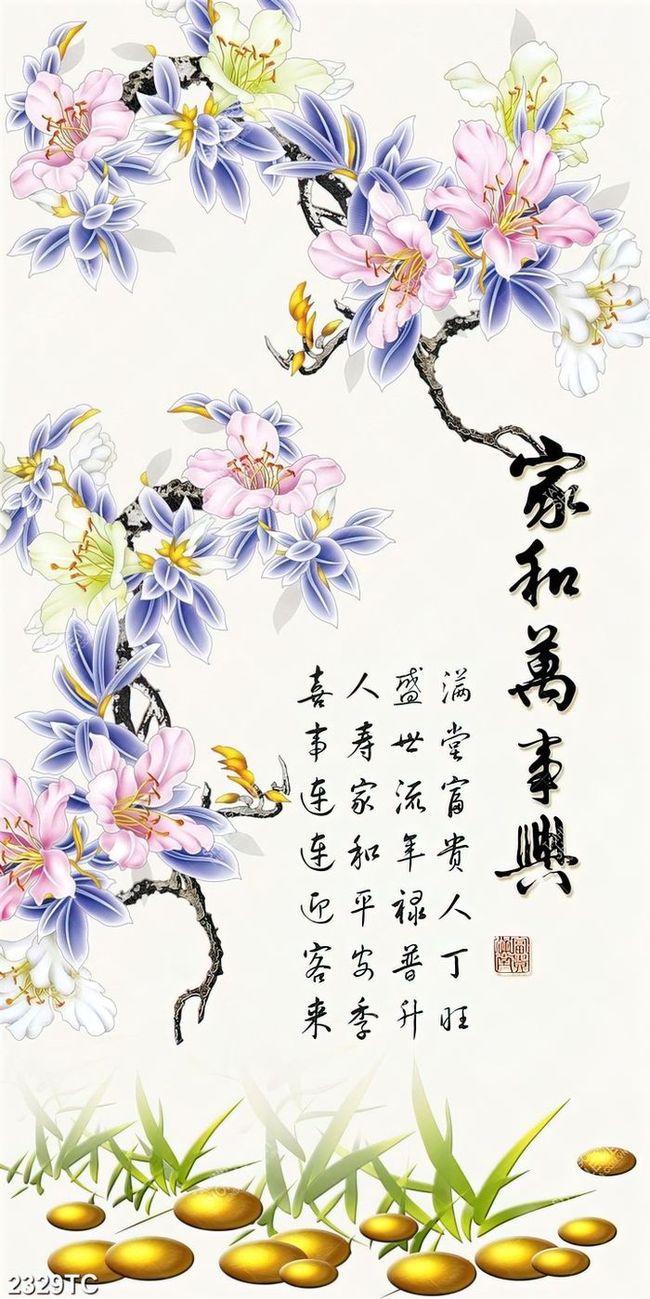 家和萬事興
满堂富贵人丁旺
盛世流年禄普升
人寿家和平安季
喜事连连迎客来
2329TC